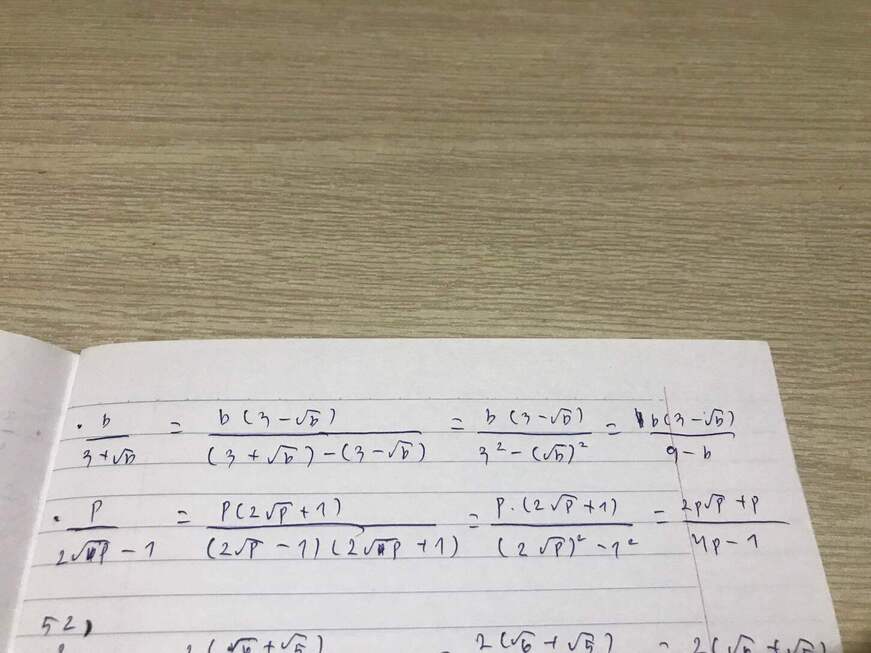 . b/(3+√b) = b(3-√b)/((3+√b)-(3-√b)) = b(3-√b)/(3²-(√b)²) = b(3-√b)/(9-b)
. p/(2√p-1) = p(2√p+1)/((2√p-1)(2√p+1)) = p.(2√p+1)/((2√p)²-1²) = (2p√p+p)/(4p-1)
52)
2(√6+√5) = 2(√6+√5) = 2(√6+√5)